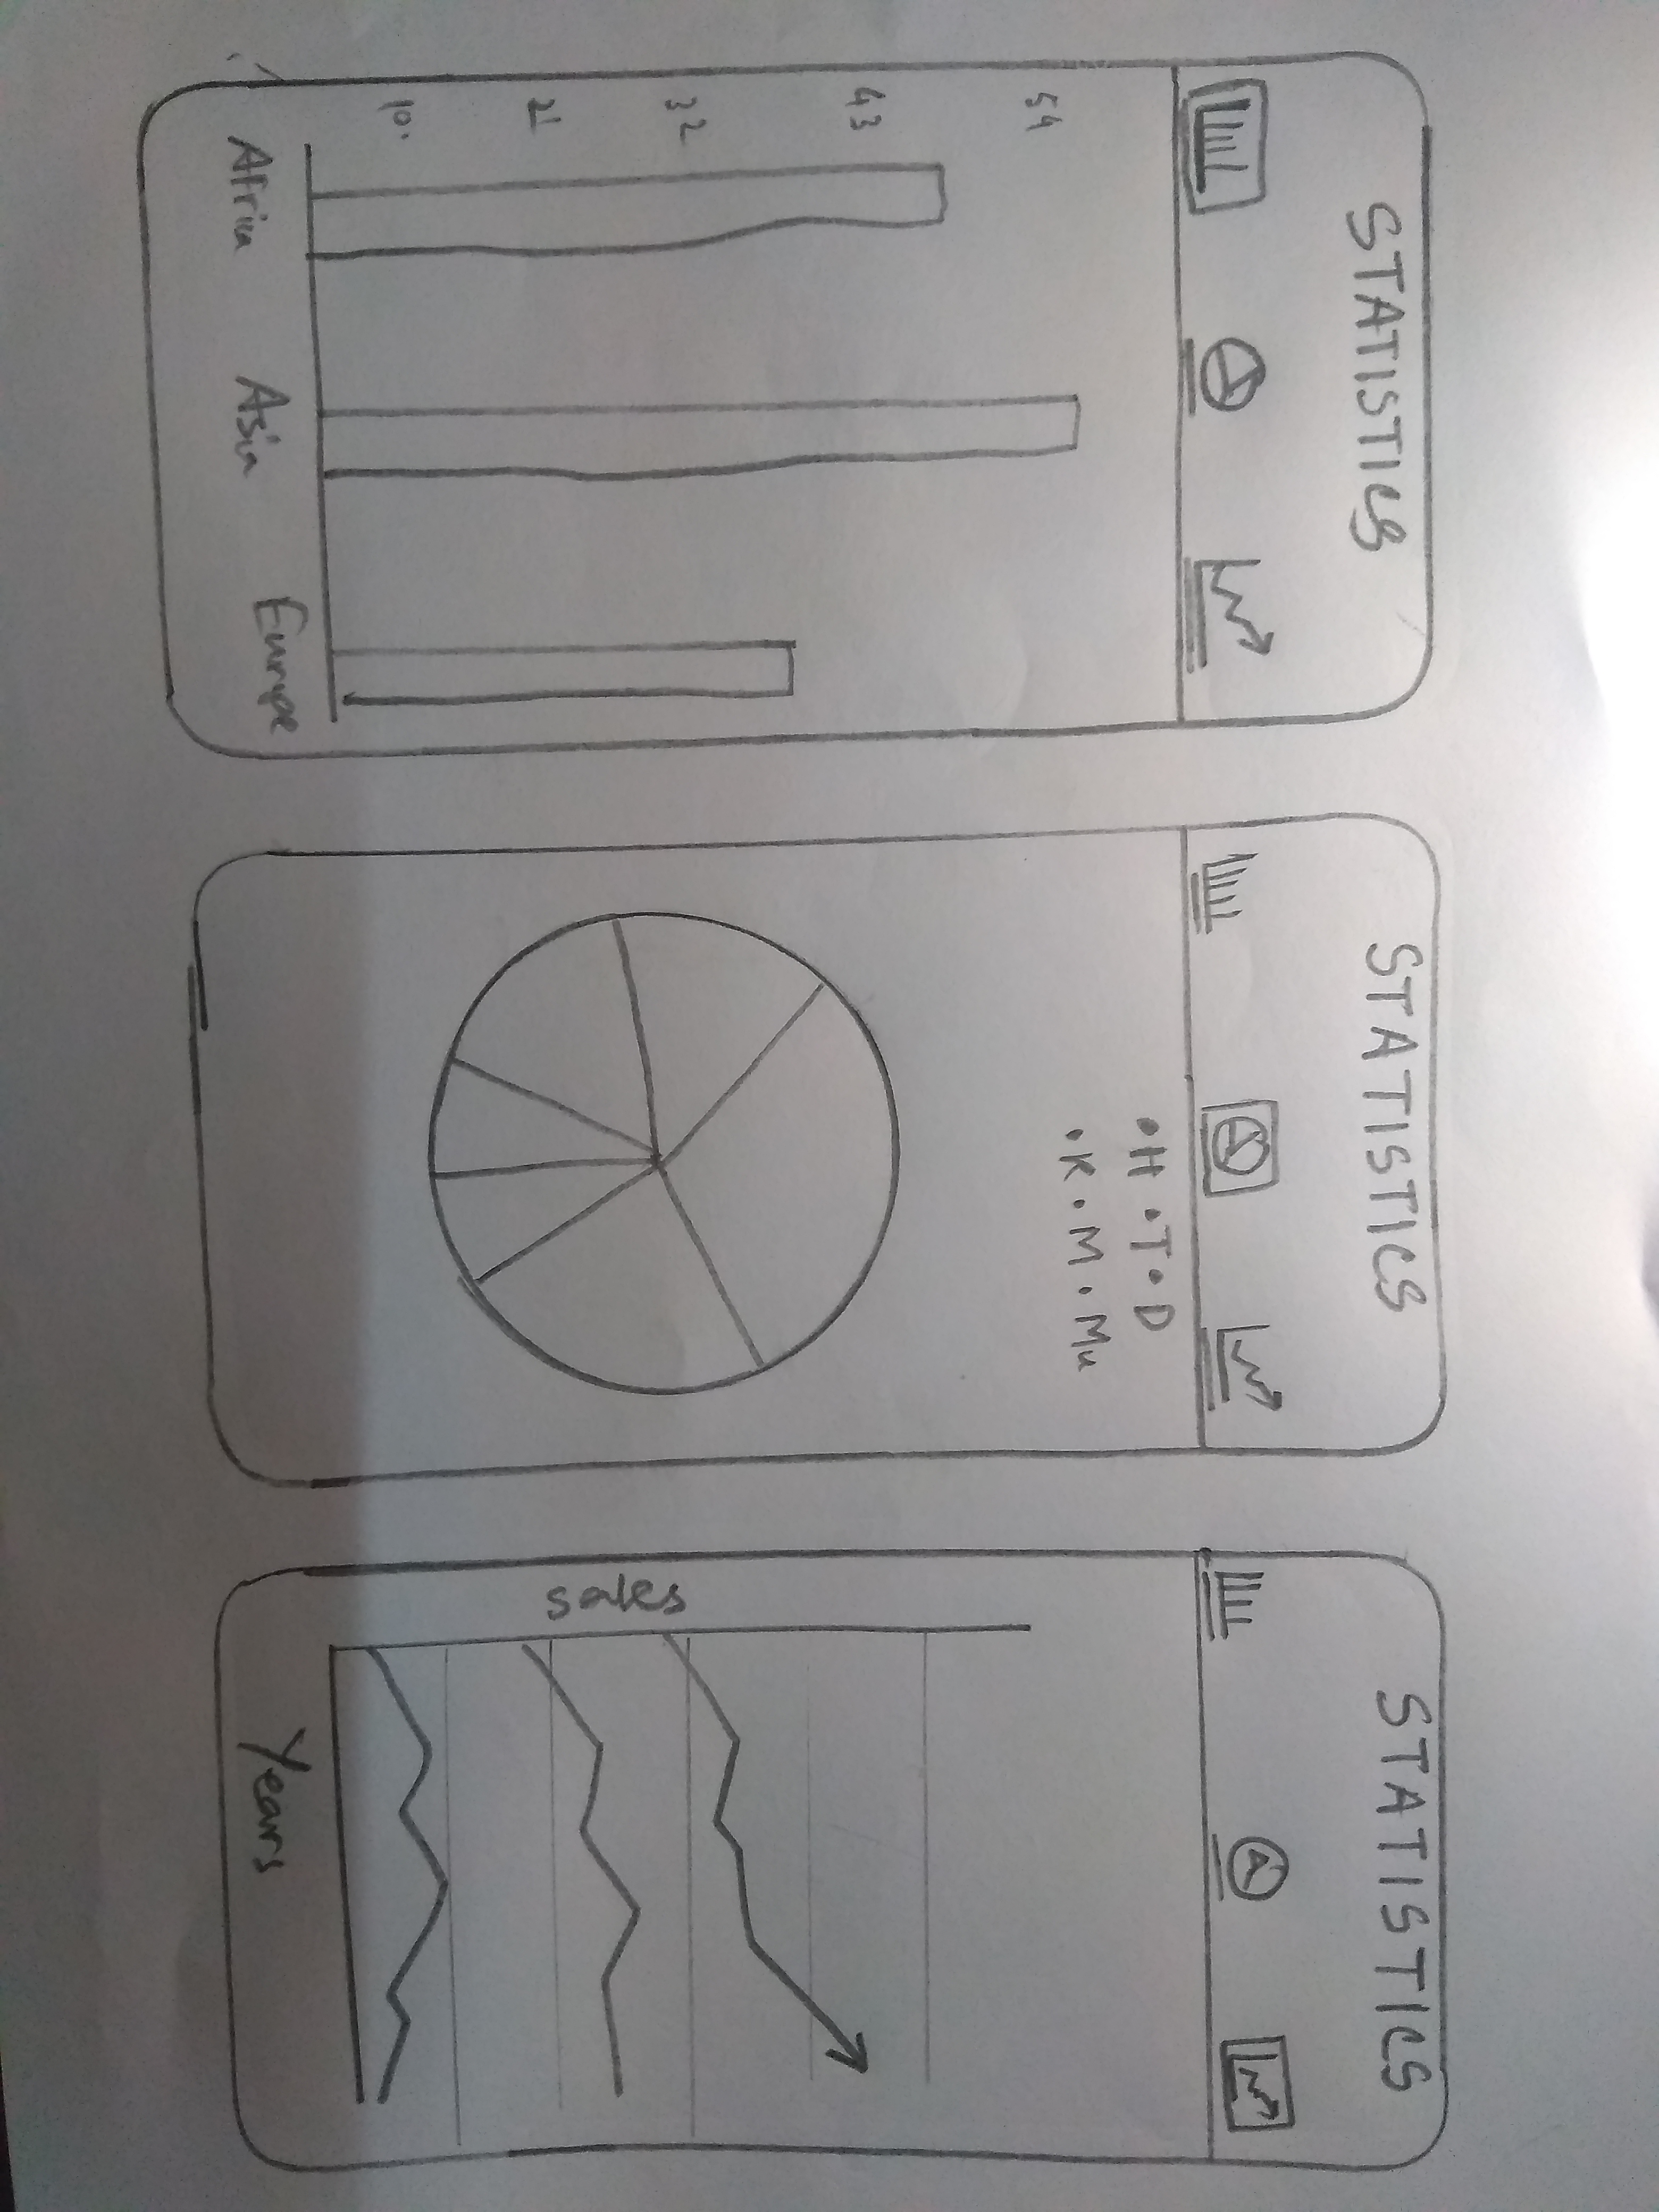 STATISTICS
54
43
32
21
10
Africa
Asia
Europe
STATISTICS
• H • T • D
• K • M • Mu
STATISTICS
Sales
Years